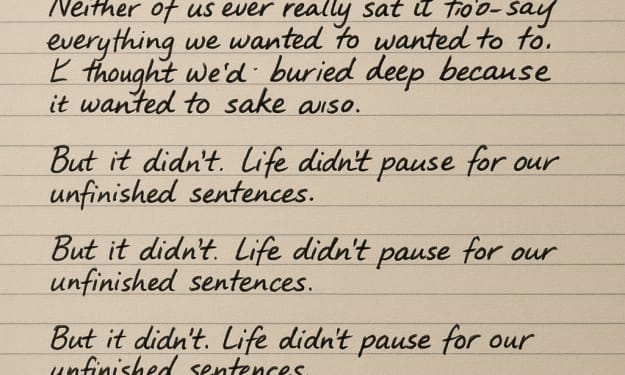 Neither of us ever really sat it too-say
everything we wanted to wanted to to.
thought we'd buried deep because
it wanted to sake
But it didn't. Life didn't pause for our
unfinished sentences.
But it didn't. Life didn't pause for our
unfinished sentences.
But it didn't. Life didn't pause for our
unfinished sentences.